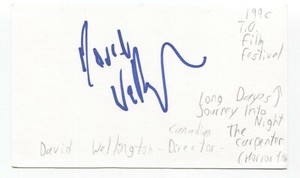 1996
T.O.
Film
Festival
David
Wellington
Long Days
Journey Into
Night
Canadian The
David Wellington - Director - Carpenter
(Horror film